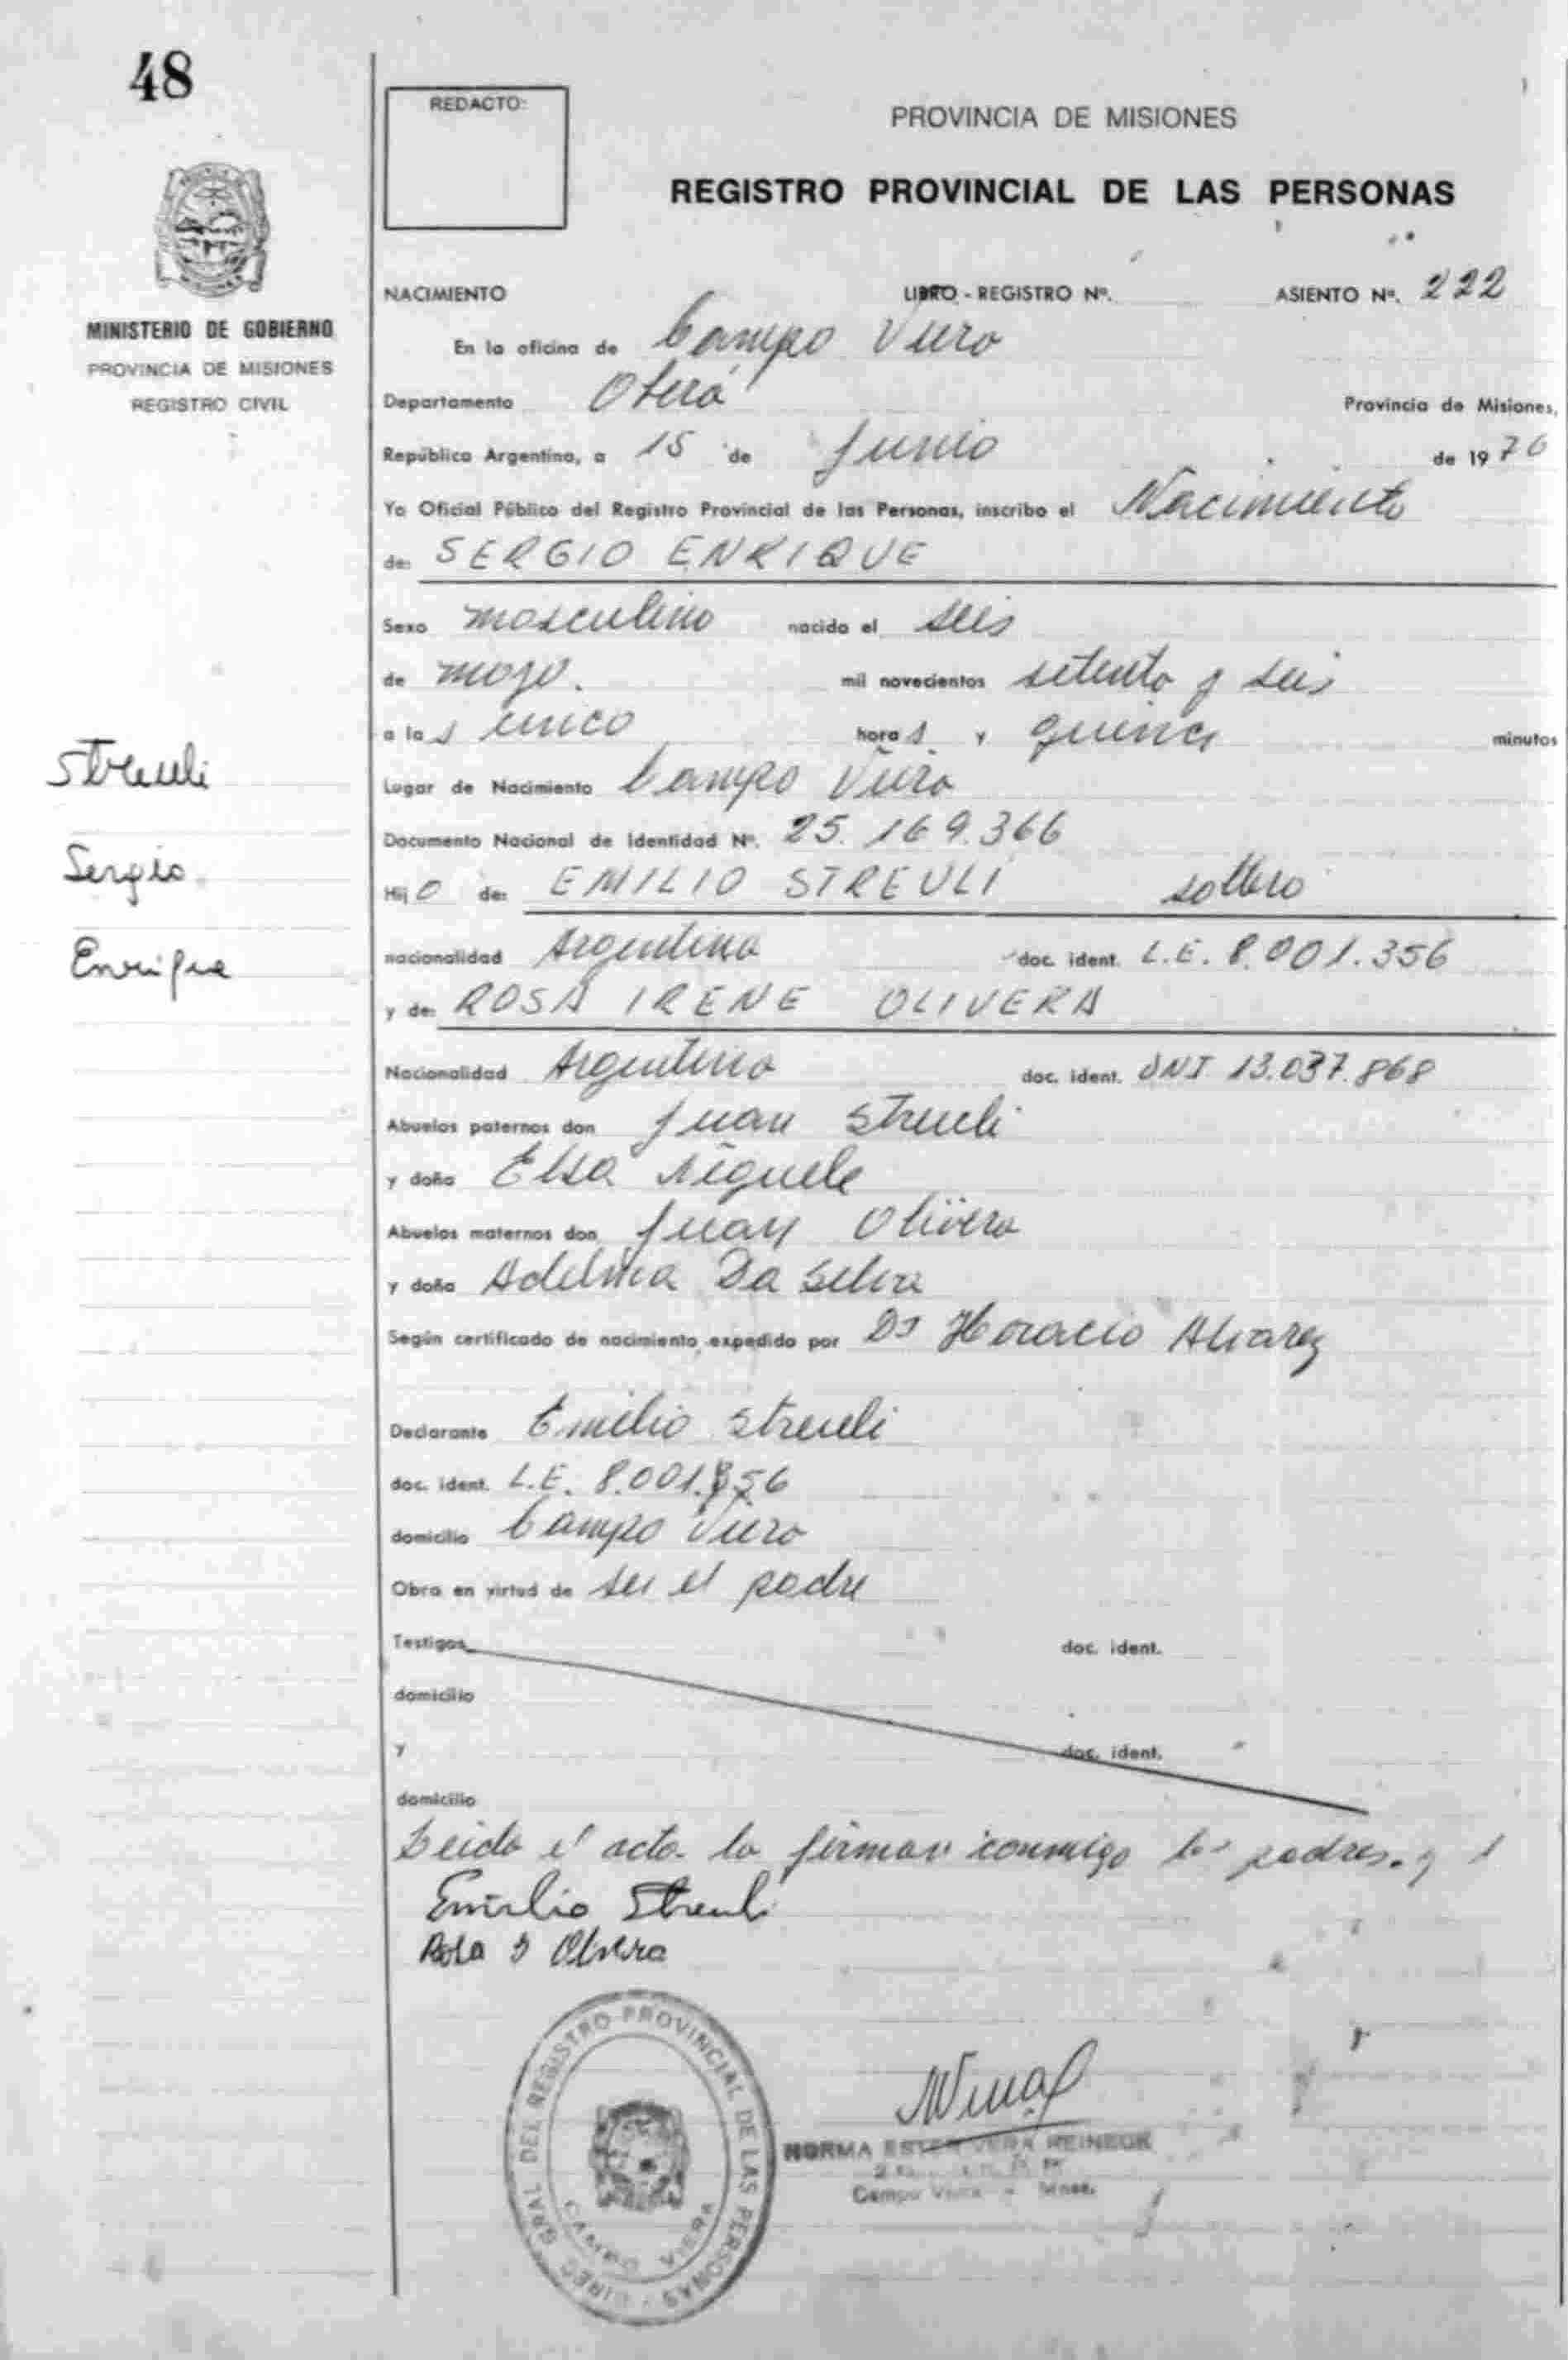 48
REDACTO:
PROVINCIA DE MISIONES
REGISTRO PROVINCIAL DE LAS PERSONAS
MINISTERIO DE GOBIERNO
PROVINCIA DE MISIONES
REGISTRO CIVIL
NACIMIENTO LIBRO - REGISTRO Nº. ASIENTO Nº. 222
En la oficina de Campo Viera
Departamento Oberá Provincia de Misiones,
República Argentina, a 15 de Junio de 1976
Yo Oficial Público del Registro Provincial de las Personas, inscribo el Nacimiento
de: SERGIO ENRIQUE
Sexo masculino nacido el seis
de mayo. mil novecientos setenta y seis
a las cinco horas y quince minutos
Streuli
Lugar de Nacimiento Campo Viera
Documento Nacional de Identidad Nº. 25.169.366
Sergio
Hijo de: EMILIO STREULI soltero
Enrique
nacionalidad Argentina doc. ident. L.E. 8.001.356
y de: ROSA IRENE OLIVERA
Nacionalidad Argentina doc. ident. DNI 13.037.868
Abuelos paternos don Juan Streuli
y doña Elsa
Abuelos maternos don Juan Olivera
y doña Adelina Da Silva
Según certificado de nacimiento expedido por Dr Horacio Alvarez
Declarante Emilio Streuli
doc. ident. L.E. 8.001.356
domicilio Campo Viera
Obra en virtud de ser el padre
Testigos doc. ident.
domicilio
y doc. ident.
domicilio
Leida el acta la firman conmigo los padres.
Emilio Streuli
Rosa I Olivera
DIREC. GRAL. DEL REGISTRO PROVINCIAL DE LAS PERSONAS
CAMPO VIERA
NORMA ESTER VERA REINECK
Campo Viera - Mnes.